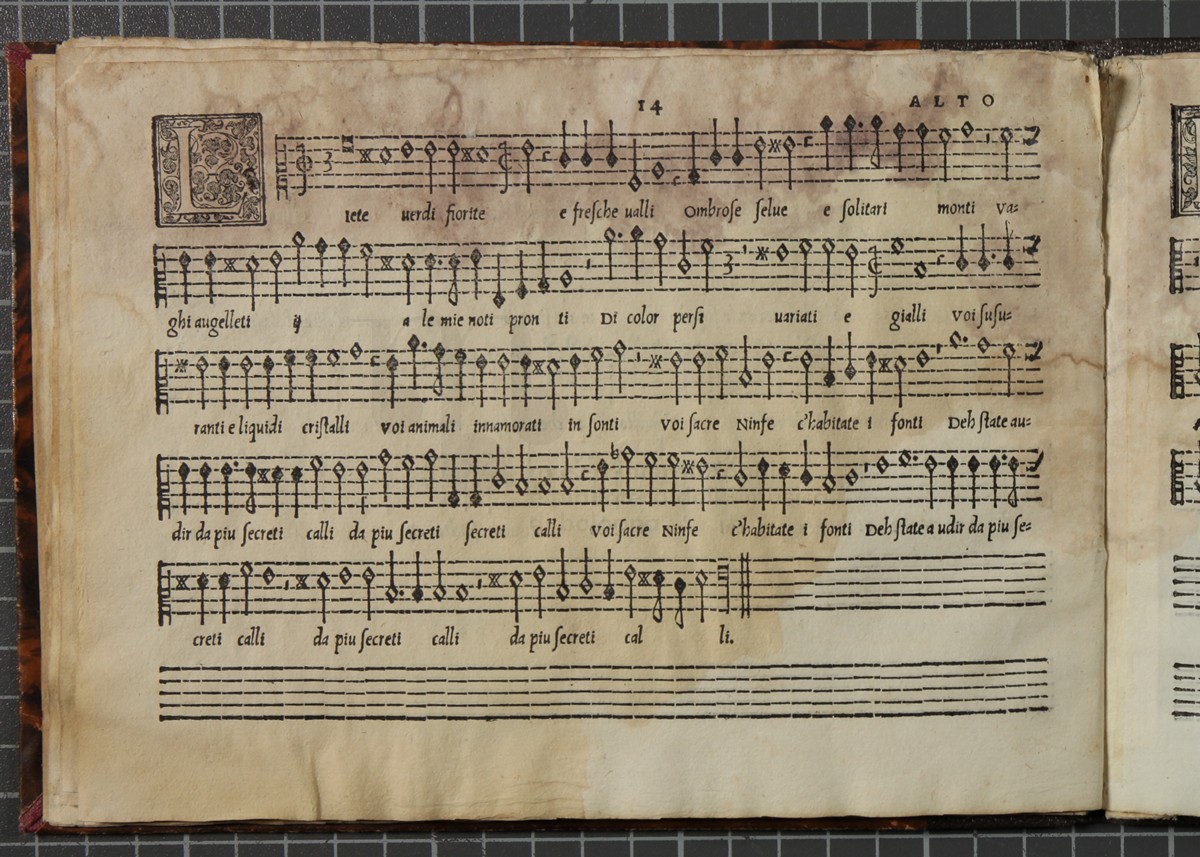 14
ALTO
L
Iete uerdi fiorite e fresche ualli Ombrose selue e solitari monti Va=
ghi augelleti ij a le mie noti pron ti Di color persi uariati e gialli Voi susu=
ranti e liquidi cristalli Voi animali innamorati in fonti Voi sacre Ninfe c'habitate i fonti Deh state au=
dir da piu secreti calli da piu secreti secreti calli Voi sacre Ninfe c'habitate i fonti Deh state a udir da piu se=
creti calli da piu secreti calli da piu secreti cal li.